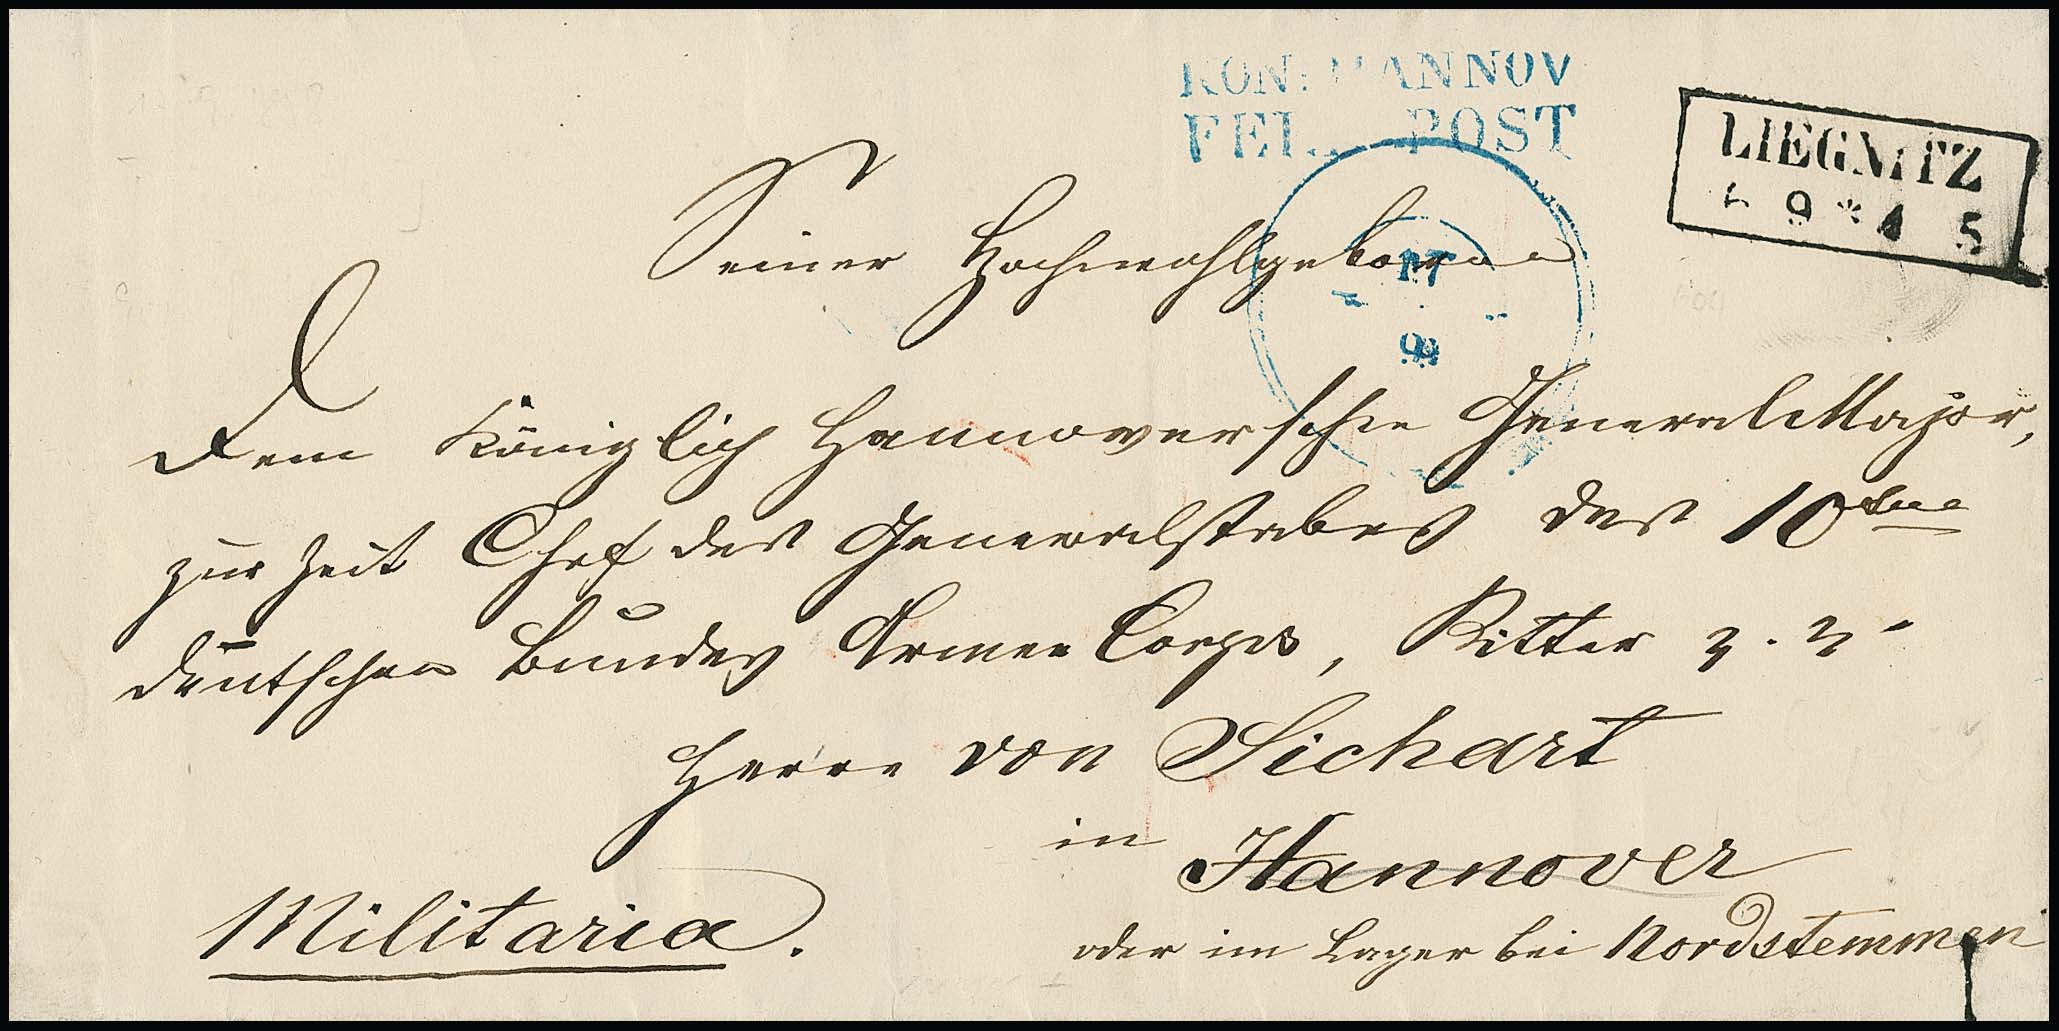 KÖN. HANNOV
FELDPOST
LIEGNITZ
9 * 4 5
17
9
Seiner Hochwohlgeboren
Dem Königlich Hannoverschen General Major,
zur Zeit Chef des Generalstabes des 10ten
deutschen Bundes Armee Corps, Ritter p. p.
Herrn von Sichart
in Hannover
Militaria.
oder im Lager bei Nordstemmen